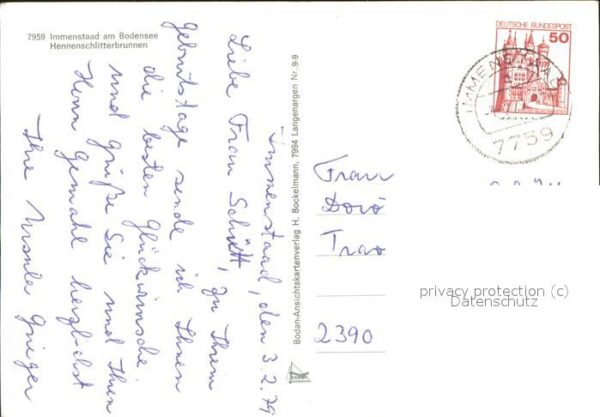 7959 Immenstaad am Bodensee
Hennenschlitterbrunnen
Immenstaad, den 3.2.79
Liebe Frau Schütt, zu Ihrem
geburtstage sende ich Ihnen
die besten Glückwünsche
und grüße Sie und Ihren
Herrn Gemahl herzlichst
Ihre Ursula
Bodan-Ansichtskartenverlag H. Bockelmann, 7994 Langenargen Nr. 9-9
DEUTSCHE BUNDESPOST
50
IMMENSTAAD
7759
Frau
Doro
Trao
2390
privacy protection (c)
Datenschutz